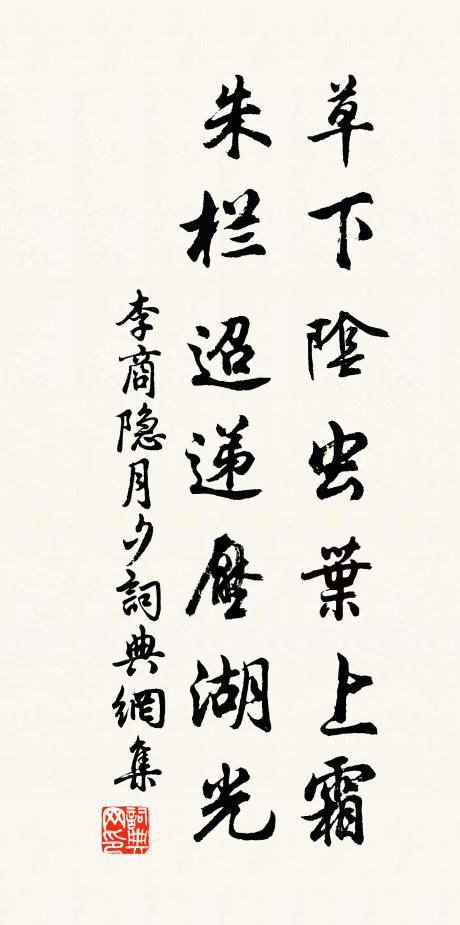 草下陰虫葉上霜
朱栏迢递壓湖光
李商隐月夕詞典網集
詞典網印